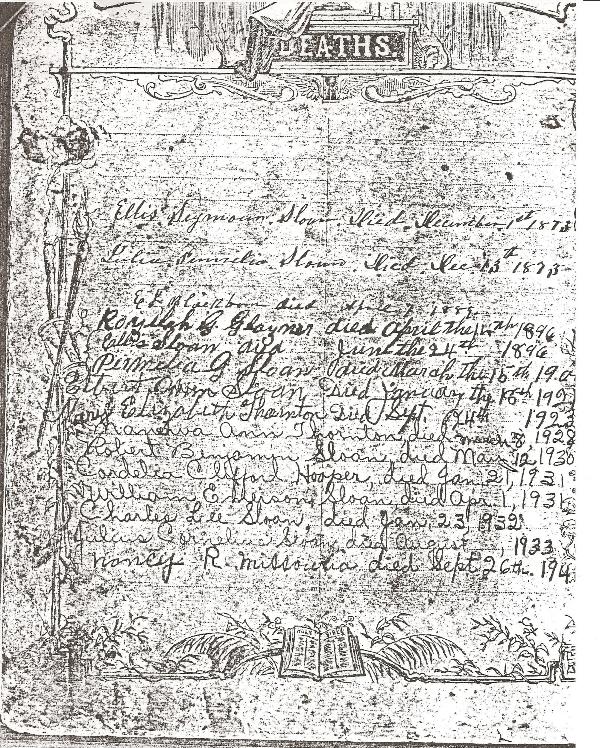 DEATHS.
Ellis Seymour Sloan. Died. December 1st 1873
Permelia Sloan. Died. Dec 13th 1873
E L Blackborn died April 1888
G Glaymer died April the 15th 1896
Ellis Sloan, died June the 24th 1896
Permelia G Sloan died March the 15th 190
Elbert Sloan Died January the 15th 192
Mary Elizabeth Thornton Died Sept. 24th 1923
Ann Thornton, died March 8, 1928
Robert Benjamin Sloan, died Mar 12, 1930
Cordelia Clifford Hooper, died Jan 21, 1931
William Emerson Sloan, died Apr. 1, 1931
Charles Lee Sloan, died Jan, 23 1932
Julius Cornelius Sloan, died August , 1933
Nancy R. Missouria died Sept 26th. 194